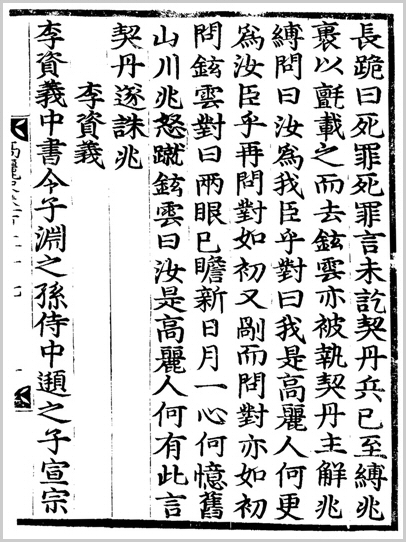 長跪曰死罪死罪言未訖契丹兵已至縛兆
裹以氈載之而去鉉雲亦被執契丹主解兆
縛問曰汝爲我臣乎對曰我是高麗人何更
爲汝臣乎再問對如初又剮而問對亦如初
問鉉雲對曰兩眼已瞻新日月一心何憶舊
山川兆怒蹴鉉雲曰汝是高麗人何有此言
契丹遂誅兆
李資義
李資義中書令子淵之孫侍中頲之子宣宗